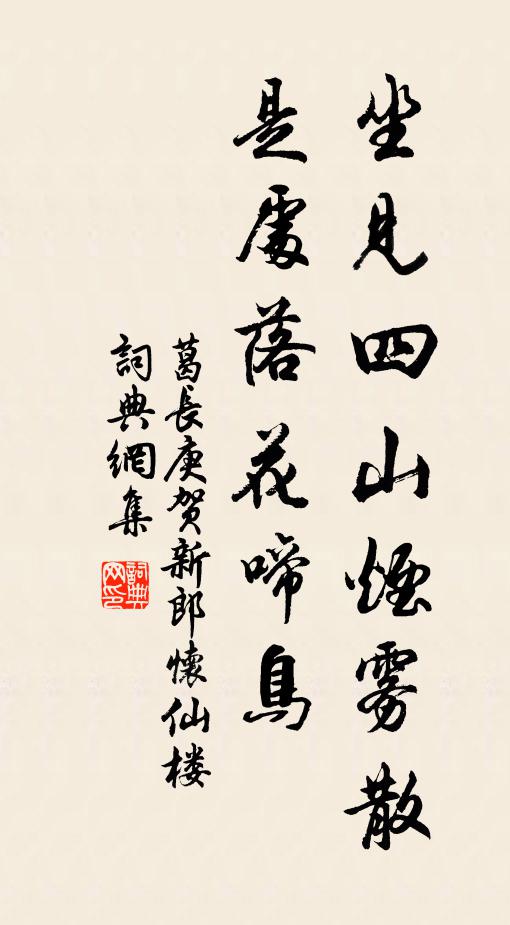 坐見四山煙雾散
是處落花啼鳥
葛長庚贺新郎懷仙楼
詞典網集
詞典网印